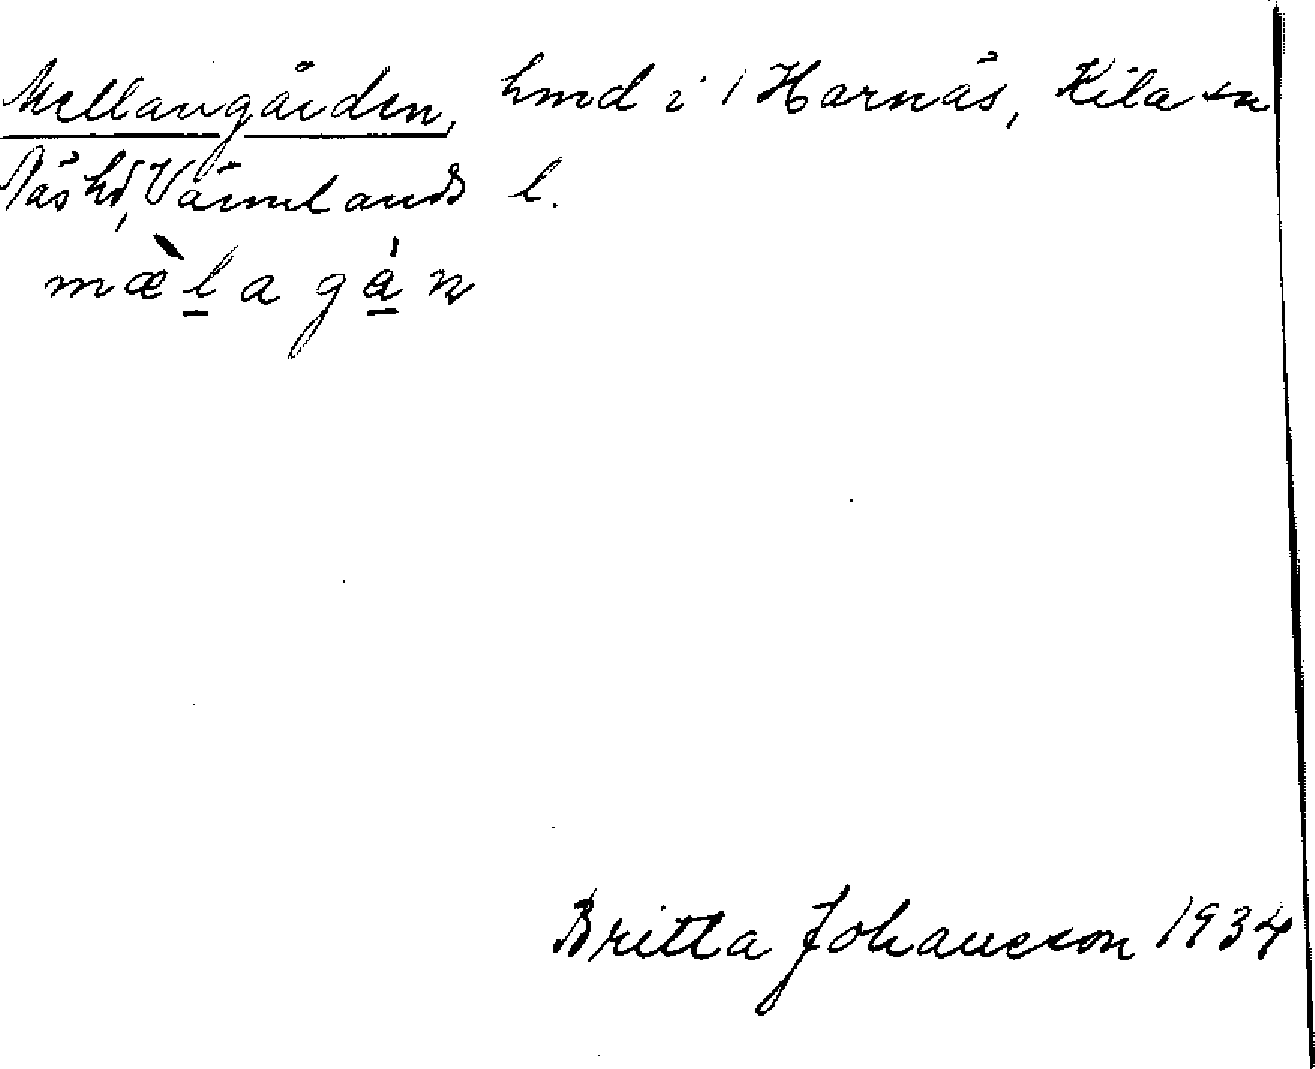 Mellangården, hmd i 1 Harnäs, Kila sn
Näs hd, Värmlands l.
mæ̀lagån
Britta Johansson 1934